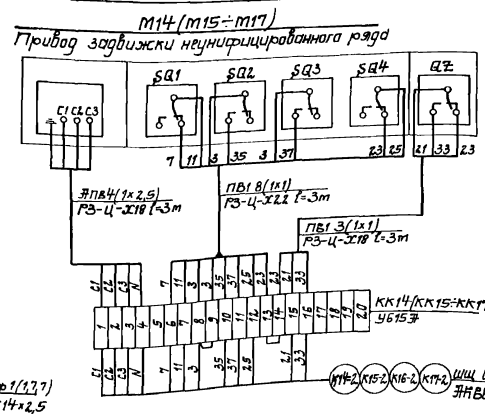 М14 (М15÷М17)
Привод задвижки неунифицированного ряда
SQ1 SQ2 SQ3 SQ4 QZ
С1 С2 С3
7 11 3 35 3 37 23 25 21 33 23
АПВ4(1×2,5)
РЗ-Ц-Х18 ℓ=3м
ПВ1 8(1×1)
РЗ-Ц-Х22 ℓ=3м
ПВ1 3(1×1)
РЗ-Ц-Х18 ℓ=3м
С1 С2 С3 N 7 11 3 3 35 37 25 23 23 21 33
1 2 3 4 5 6 7 8 9 10 11 12 13 14 15 16 17 18 19 20
КК14/КК15÷КК1
У615А
С1 С2 С3 N 7 11 3 35 37 25 21 33
К14-2 К15-2 К16-2 К17-2
ШЩ
р1(1,7,7)
14×2,5